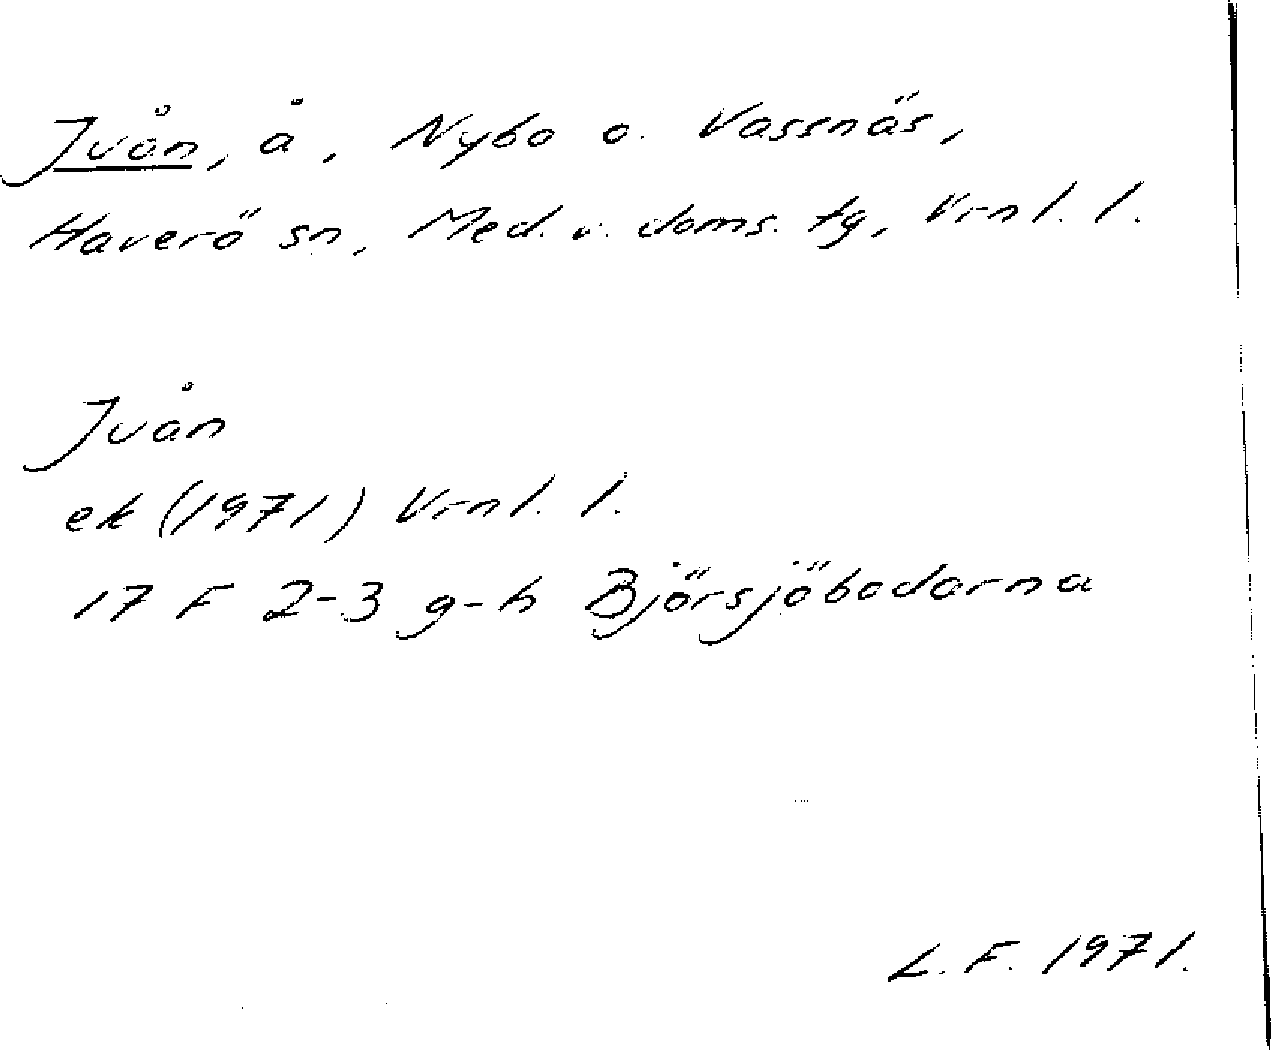 Juån, å, Nybo o. Vassnäs,
Haverö sn, Med. v. doms. tg, Vrnl. l.
Juån
ek (1971) Vrnl. l.
17 F 2-3 g-h Björsjöbodarna
L. F. 1971.